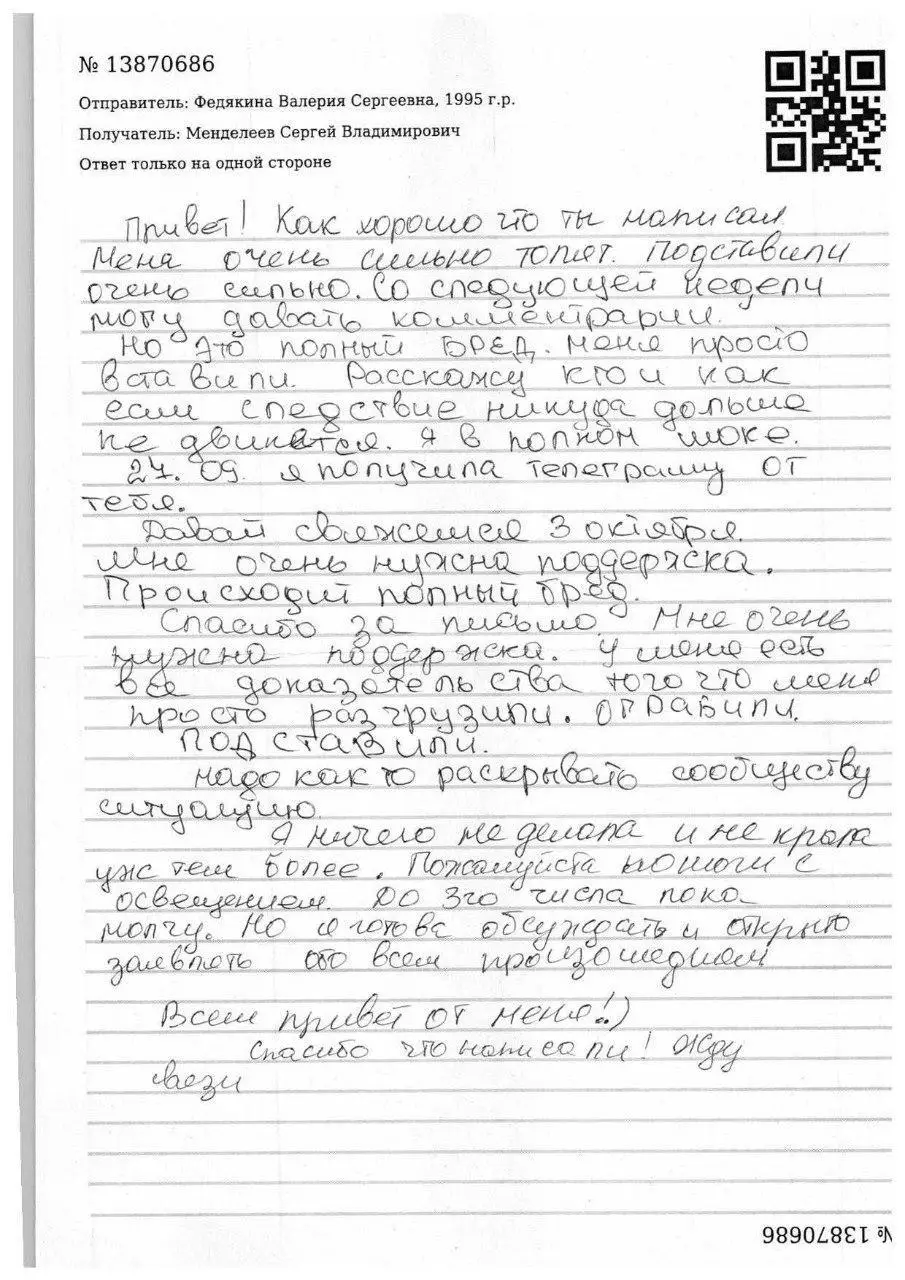 № 13870686
Отправитель: Федякина Валерия Сергеевна, 1995 г.р.
Получатель: Менделеев Сергей Владимирович
Ответ только на одной стороне
Привет! Как хорошо что ты написал
Меня очень сильно топят. Подставили
очень сильно. Со следующей недели
могу давать комментрарии.
Но это полный БРЕД. Меня просто
вставили. Расскажу кто и как
если следствие никуда дольше
не двинется. Я в полном шоке.
27.09. я получила телеграмму от
тебя.
Давай свяжемся 3 октября.
Мне очень нужна поддержка.
Происходит полный бред.
Спасибо за письмо. Мне очень
нужна поддержка. У меня есть
все доказательства того что меня
просто разгрузили. ограбили.
ПОДСТАВИЛИ.
надо как то раскрывать сообществу
ситуацию.
Я ничего не делала и не крала
уж тем более. Пожалуйста помоги с
освещением. До 3го числа пока
молчу. Но я готова обсуждать и открыто
заявлять обо всем произошедшем
Всем привет от меня!)
Спасибо что написали! Жду
связи
№ 13870686